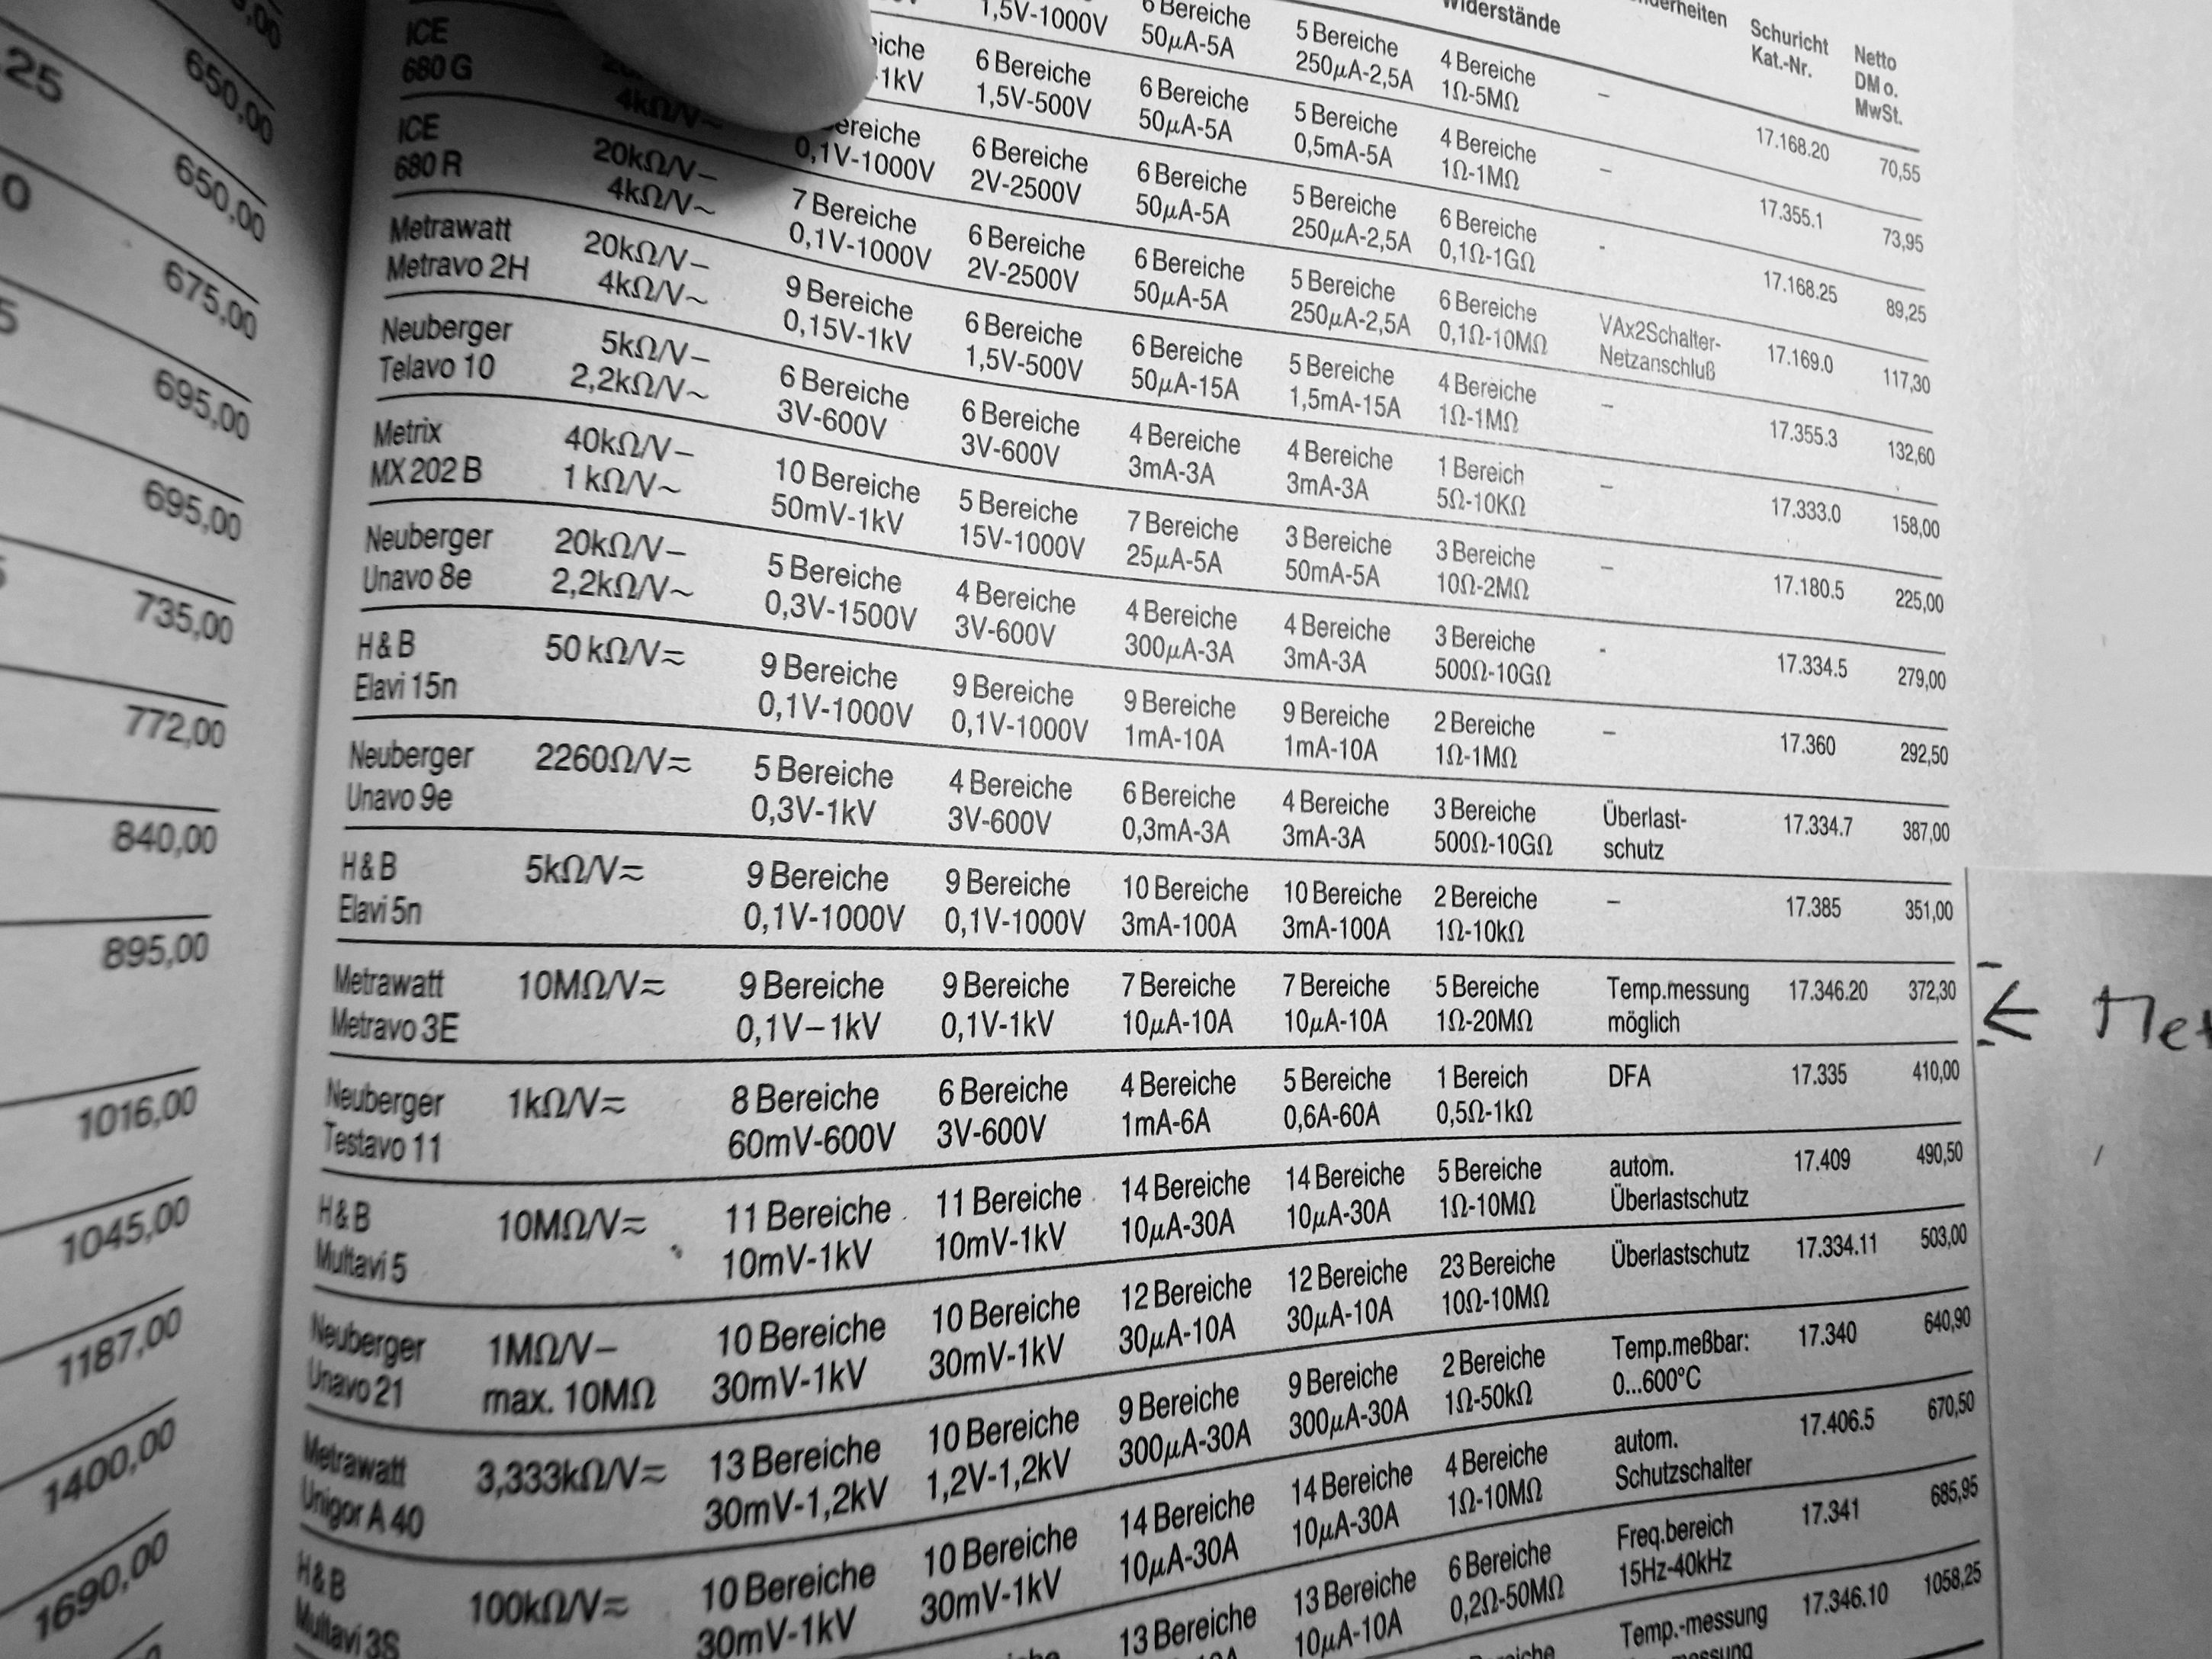 650,00
25 650,00
0 675,00
5 695,00
695,00
735,00
772,00
840,00
895,00
1016,00
1045,00
1187,00
1400,00
1690,00
Widerstände Schuricht Netto
Kat.-Nr. DM o.
MwSt.
6 Bereiche 5 Bereiche 4 Bereiche – 17.168.20 70,55
1,5V-1000V 50µA-5A 250µA-2,5A 1Ω-5MΩ
6 Bereiche 6 Bereiche 5 Bereiche 4 Bereiche – 17.355.1 73,95
1,5V-500V 50µA-5A 0,5mA-5A 1Ω-1MΩ
ICE 6 Bereiche 6 Bereiche 5 Bereiche 6 Bereiche - 17.168.25 89,25
680 G 4kΩ/V~ 0,1V-1000V 2V-2500V 50µA-5A 250µA-2,5A 0,1Ω-1GΩ
ICE 20kΩ/V– 7 Bereiche 6 Bereiche 6 Bereiche 5 Bereiche 6 Bereiche VAx2Schalter- 17.169.0 117,30
680 R 4kΩ/V~ 0,1V-1000V 2V-2500V 50µA-5A 250µA-2,5A 0,1Ω-10MΩ Netzanschluß
Metrawatt 20kΩ/V– 9 Bereiche 6 Bereiche 6 Bereiche 5 Bereiche 4 Bereiche – 17.355.3 132,60
Metravo 2H 4kΩ/V~ 0,15V-1kV 1,5V-500V 50µA-15A 1,5mA-15A 1Ω-1MΩ
Neuberger 5kΩ/V– 6 Bereiche 6 Bereiche 4 Bereiche 4 Bereiche 1 Bereich – 17.333.0 158,00
Telavo 10 2,2kΩ/V~ 3V-600V 3V-600V 3mA-3A 3mA-3A 5Ω-10KΩ
Metrix 40kΩ/V– 10 Bereiche 5 Bereiche 7 Bereiche 3 Bereiche 3 Bereiche – 17.180.5 225,00
MX 202 B 1 kΩ/V~ 50mV-1kV 15V-1000V 25µA-5A 50mA-5A 10Ω-2MΩ
Neuberger 20kΩ/V– 5 Bereiche 4 Bereiche 4 Bereiche 4 Bereiche 3 Bereiche - 17.334.5 279,00
Unavo 8e 2,2kΩ/V~ 0,3V-1500V 3V-600V 300µA-3A 3mA-3A 500Ω-10GΩ
H & B 50 kΩ/V≂ 9 Bereiche 9 Bereiche 9 Bereiche 9 Bereiche 2 Bereiche – 17.360 292,50
Elavi 15n 0,1V-1000V 0,1V-1000V 1mA-10A 1mA-10A 1Ω-1MΩ
Neuberger 2260Ω/V≂ 5 Bereiche 4 Bereiche 6 Bereiche 4 Bereiche 3 Bereiche Überlast- 17.334.7 387,00
Unavo 9e 0,3V-1kV 3V-600V 0,3mA-3A 3mA-3A 500Ω-10GΩ schutz
H & B 5kΩ/V≂ 9 Bereiche 9 Bereiche 10 Bereiche 10 Bereiche 2 Bereiche – 17.385 351,00
Elavi 5n 0,1V-1000V 0,1V-1000V 3mA-100A 3mA-100A 1Ω-10kΩ
Metrawatt 10MΩ/V≂ 9 Bereiche 9 Bereiche 7 Bereiche 7 Bereiche 5 Bereiche Temp.messung 17.346.20 372,30
Metravo 3E 0,1V–1kV 0,1V-1kV 10µA-10A 10µA-10A 1Ω-20MΩ möglich ← Met
Neuberger 1kΩ/V≂ 8 Bereiche 6 Bereiche 4 Bereiche 5 Bereiche 1 Bereich DFA 17.335 410,00
Testavo 11 60mV-600V 3V-600V 1mA-6A 0,6A-60A 0,5Ω-1kΩ
H & B 10MΩ/V≂ 11 Bereiche 11 Bereiche 14 Bereiche 14 Bereiche 5 Bereiche autom. 17.409 490,50
Multavi 5 10mV-1kV 10mV-1kV 10µA-30A 10µA-30A 1Ω-10MΩ Überlastschutz
Neuberger 1MΩ/V– 10 Bereiche 10 Bereiche 12 Bereiche 12 Bereiche 23 Bereiche Überlastschutz 17.334.11 503,00
Unavo 21 max. 10MΩ 30mV-1kV 30mV-1kV 30µA-10A 30µA-10A 10Ω-10MΩ
Metrawatt 3,333kΩ/V≂ 13 Bereiche 10 Bereiche 9 Bereiche 9 Bereiche 2 Bereiche Temp.meßbar: 17.340 640,90
Unigor A 40 30mV-1,2kV 1,2V-1,2kV 300µA-30A 300µA-30A 1Ω-50kΩ 0...600°C
H & B 100kΩ/V≂ 10 Bereiche 10 Bereiche 14 Bereiche 14 Bereiche 4 Bereiche autom. 17.406.5 670,50
Multavi 3S 30mV-1kV 30mV-1kV 10µA-30A 10µA-30A 1Ω-10MΩ Schutzschalter
13 Bereiche 13 Bereiche 6 Bereiche Freq.bereich 17.341 685,95
10µA-10A 0,2Ω-50MΩ 15Hz-40kHz
Temp.-messung 17.346.10 1058,25